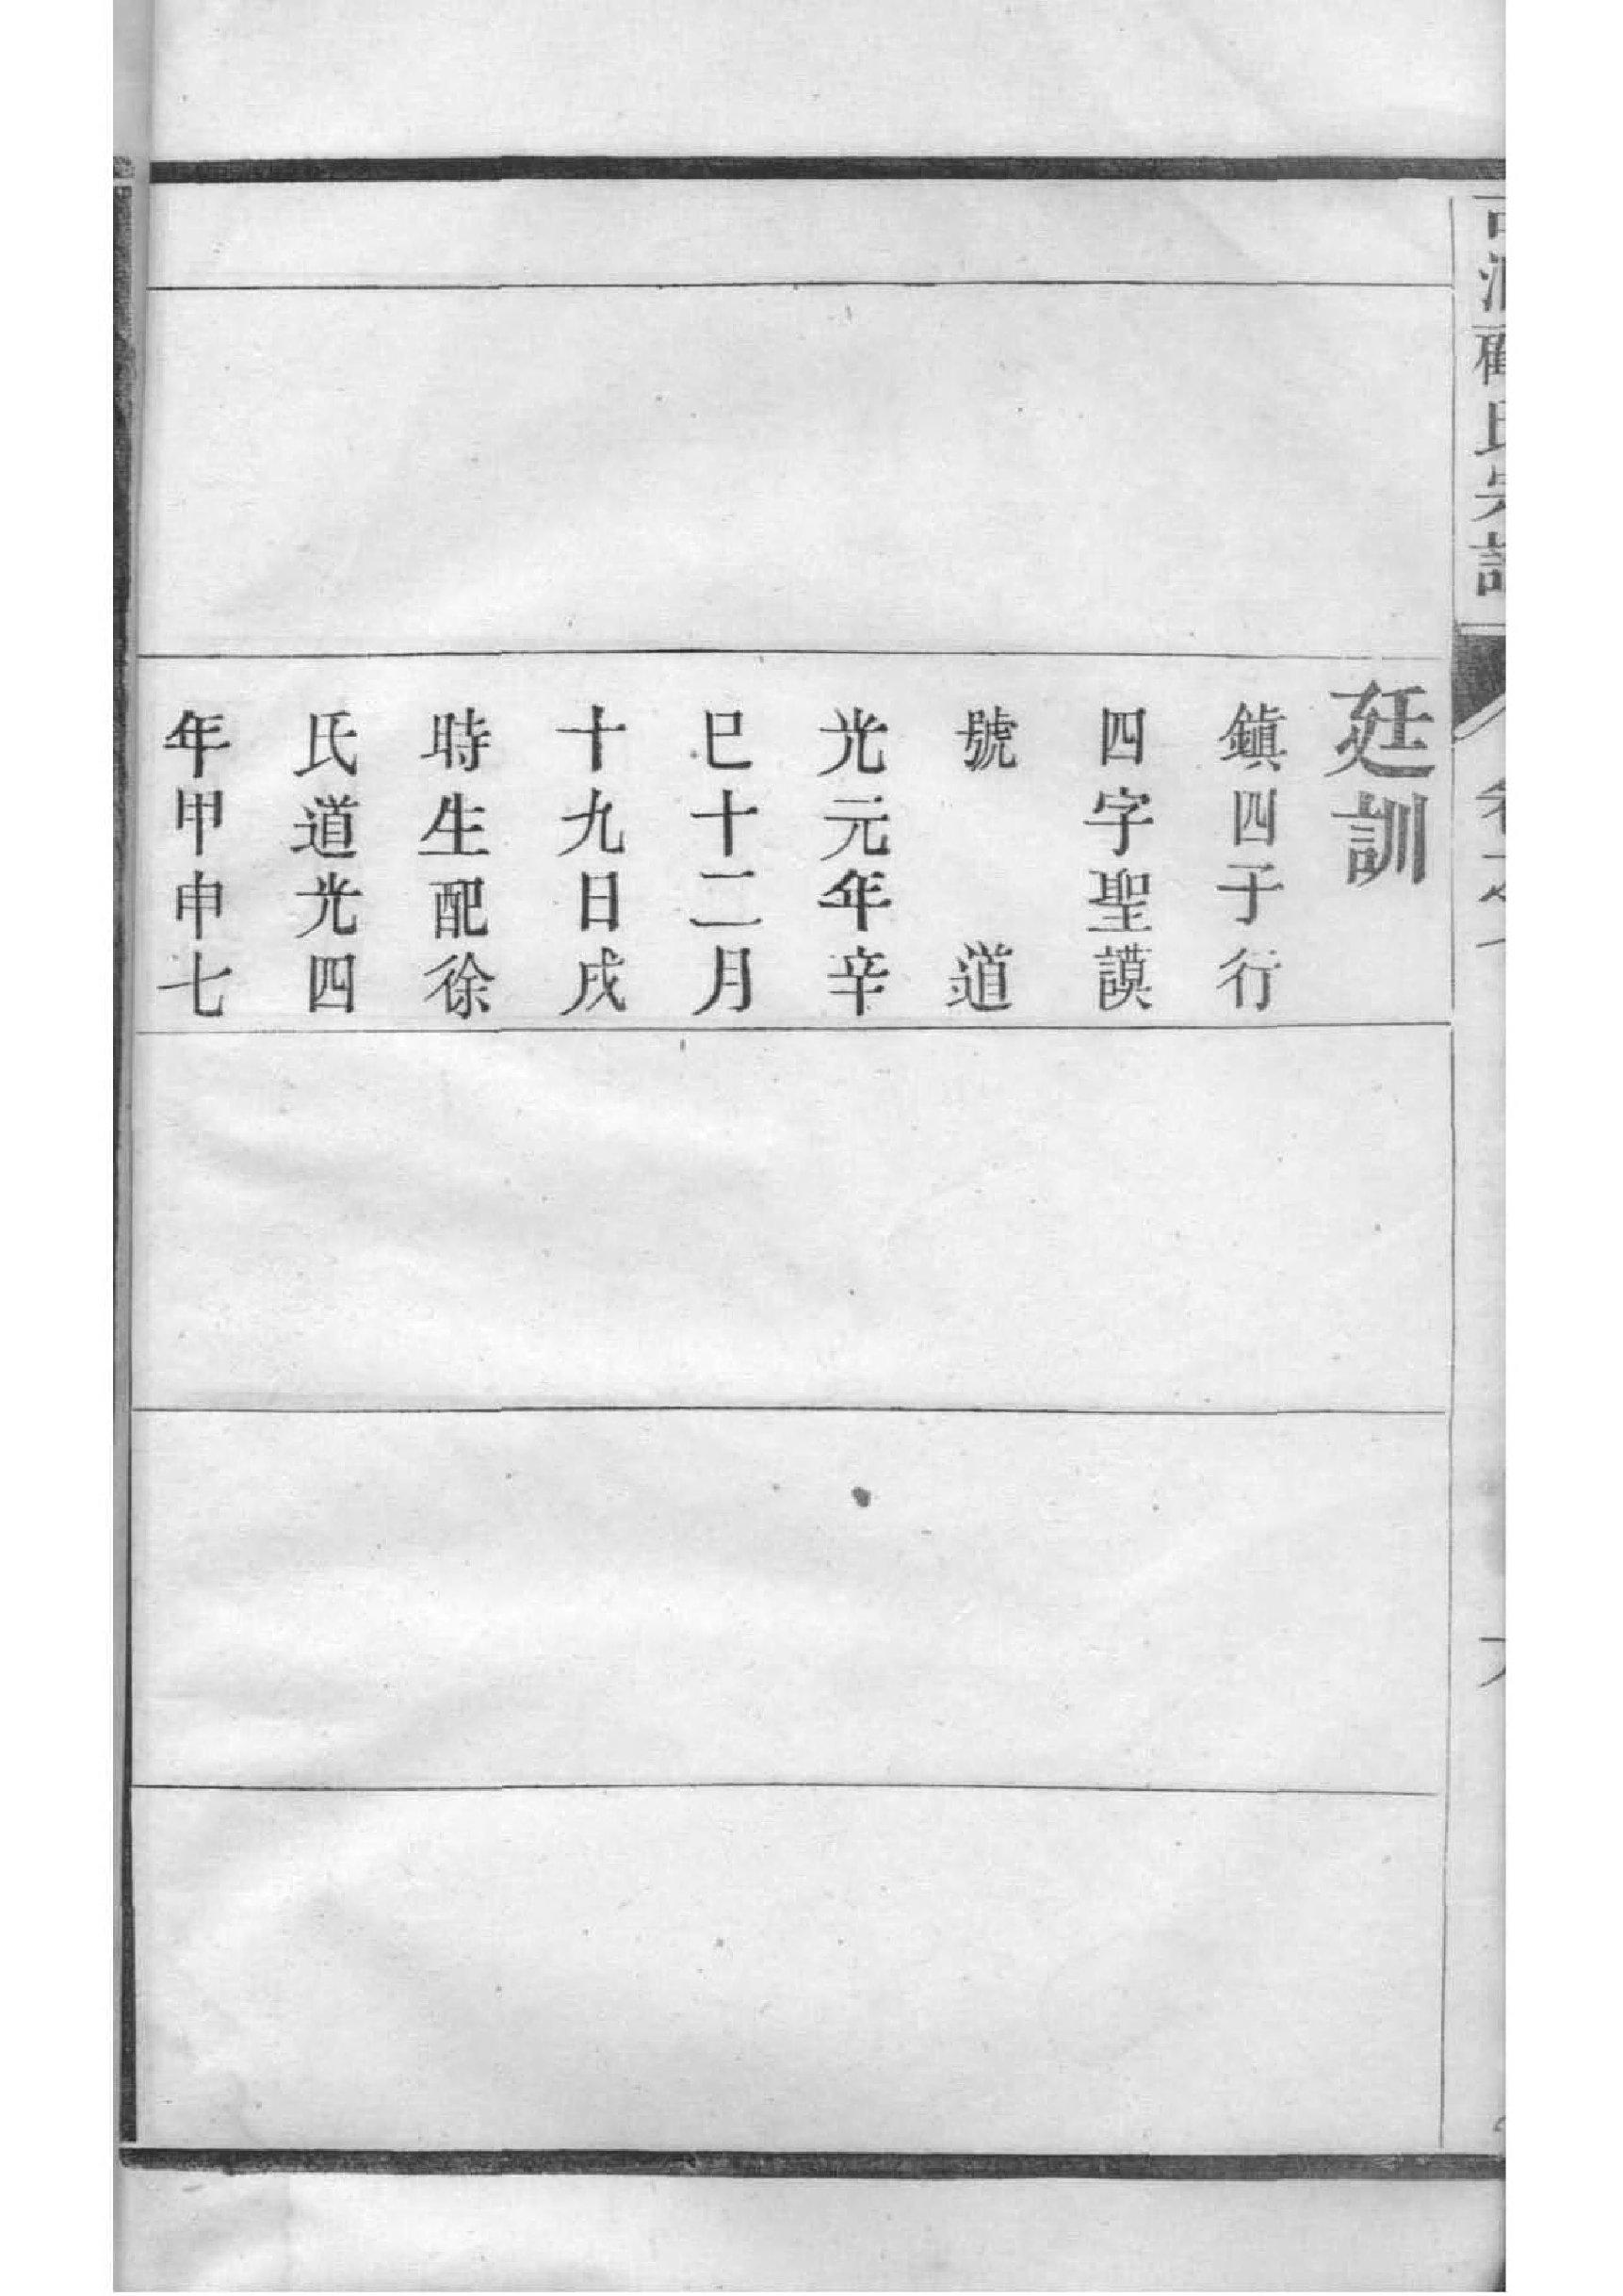 廷訓
鎮四于行
四字聖謨
號　道
光元年辛
巳十二月
十九日戌
時生配徐
氏道光四
年甲申七